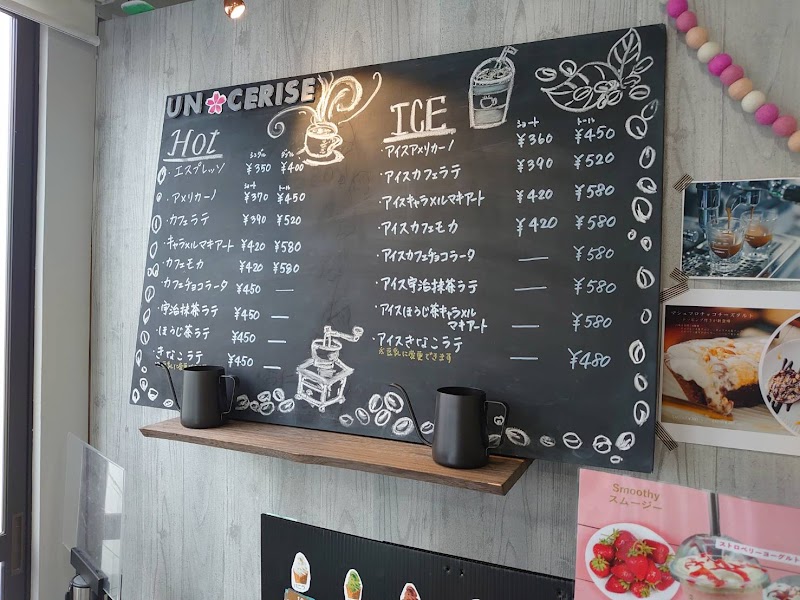 UN CERISE
Hot
シングル ダブル
・エスプレッソ ¥350 ¥400
ショート トール
・アメリカーノ ¥370 ¥450
・カフェラテ ¥390 ¥520
・キャラメルマキアート ¥420 ¥580
・カフェモカ ¥420 ¥580
・カフェチョコラータ ¥450 —
・宇治抹茶ラテ ¥450 —
・ほうじ茶ラテ ¥450 —
・きなこラテ ¥450 —
ICE
ショート トール
・アイスアメリカーノ ¥360 ¥450
・アイスカフェラテ ¥390 ¥520
・アイスキャラメルマキアート ¥420 ¥580
・アイスカフェモカ ¥420 ¥580
・アイスカフェチョコラータ — ¥580
・アイス宇治抹茶ラテ — ¥580
・アイスほうじ茶キャラメル
マキアート — ¥580
・アイスきなこラテ — ¥480
※豆乳に変更できます
Smoothy
スムージー
ストロベリーヨーグルト